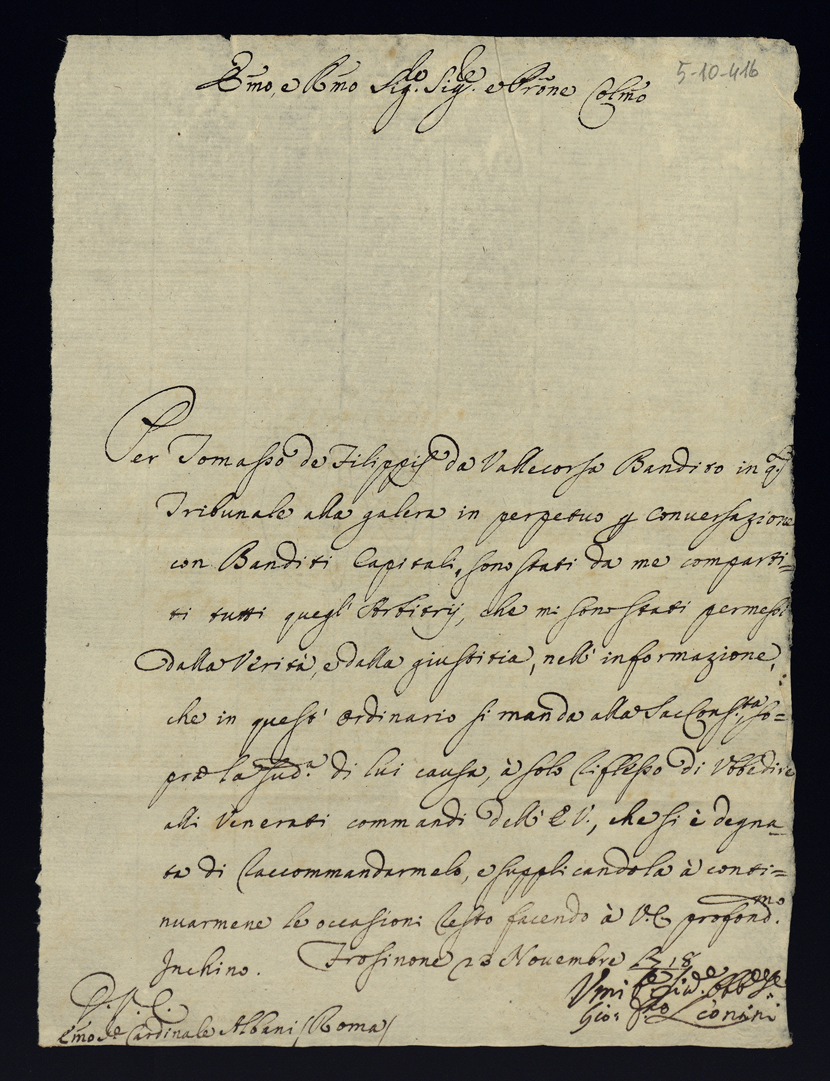 5-10-416
Emo, e Rmo Sig.re Sig.re e Prone Colmo
Per Tomasso de Filippis da Vallecorsa Bandito in q.sto
Tribunale alla galera in perpetuo p conversazione
con Banditi Capitali, sono stati da me comparti=
ti tutti quegl' Arbitrij, che mi sono stati permessi
dalla Verità, e dalla giustitia, nell' informazione,
che in quest' ordinario si manda alla Sac Cons.ta, so=
pra la sud.a di lui causa, à solo riflesso di Ubbedire
alli Venerati commandi dell' E V., che si è degna=
ta di raccommandarmelo, e supplicandola à conti=
nuarmene le occasioni resto facendo à V.E. profond.mo
Inchino. Frosinone 23 Novembre 1718
D. V. E.
Emo Sre Cardinale Albani (Roma)
Gio: